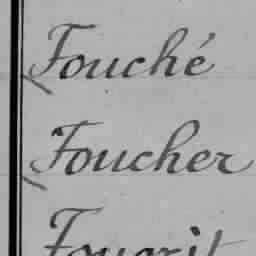 Fouché
Foucher